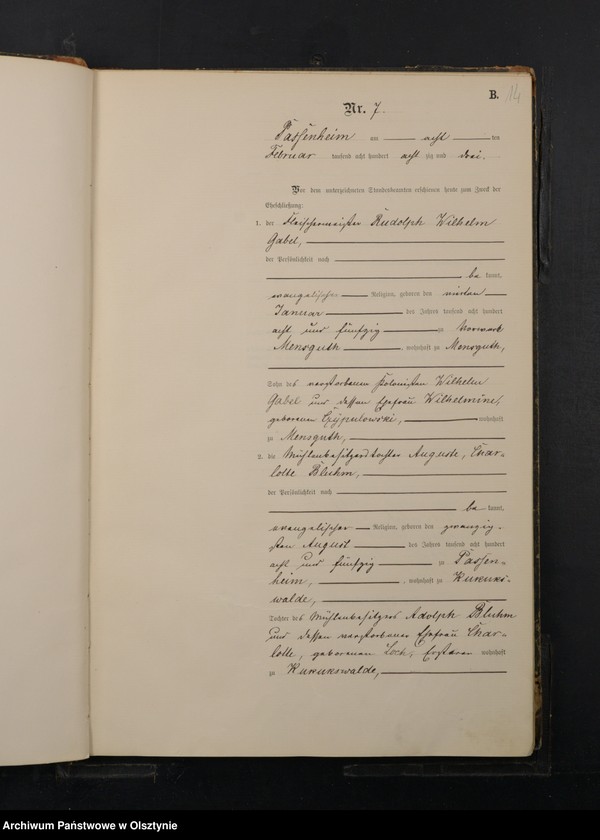 B. 14
Nr. 7.
Passenheim am acht ten
Februar tausend acht hundert acht zig und drei.
Vor dem unterzeichneten Standesbeamten erschienen heute zum Zweck der
Eheschließung:
1. der Fleischermeister Rudolph Wilhelm
Gabel,
der Persönlichkeit nach
be kannt,
evangelischer Religion, geboren den vierten
Januar des Jahres tausend acht hundert
acht und fünfzig zu Vorwerk
Mensguth, wohnhaft zu Mensguth,
Sohn des verstorbenen Kolonisten Wilhelm
Gabel und dessen Ehefrau Wilhelmine,
geborenen wohnhaft
zu Mensguth,
2. die Mühlenbesitzerstochter Auguste, Char-
lotte Bluhm,
der Persönlichkeit nach
be kannt,
evangelischer Religion, geboren den zwanzig-
sten August des Jahres tausend acht hundert
acht und fünfzig zu Passen-
heim, wohnhaft zu Kukuks-
walde,
Tochter des Mühlenbesitzers Adolph Bluhm
und dessen verstorbener Ehefrau Char-
lotte, geborenen Loch, Ersterer wohnhaft
zu Kukukswalde,
Archiwum Państwowe w Olsztynie